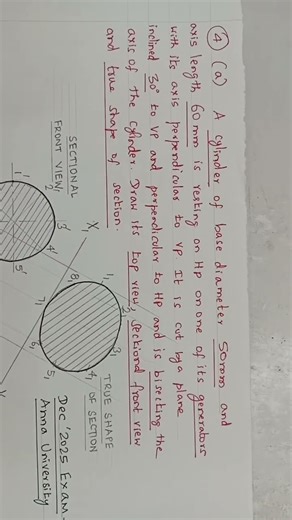 ④ (a) A cylinder of base diameter 50mm and
axis length 60mm is resting on HP on one of its generators
with its axis perpendicular to VP It is cut by a plane
inclined 30° to VP and perpendicular to HP and is bisecting the
axis of the cylinder. Draw its top view, sectional front view
and true shape of section.
SECTIONAL
FRONT VIEW
1'
2'
3'
4'
5'
X₁
1₁
2₁
3₁
4₁
5₁
6₁
7₁
8₁
TRUE SHAPE
OF SECTION
Dec '2025 Exam.
Anna University